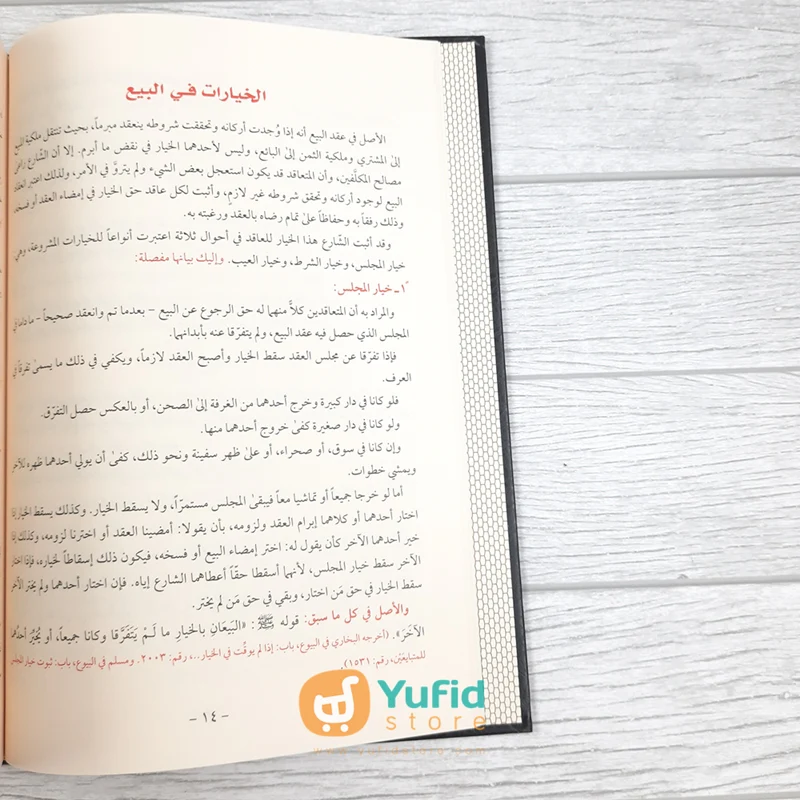 الخيارات في البيع
الأصل في عقد البيع أنه إذا وُجدت أركانه وتحققت شروطه ينعقد مبرماً، بحيث تنتقل ملكية المبيع
إلى المشتري وملكية الثمن إلى البائع، وليس لأحدهما الخيار في نقض ما أبرم. إلا أن الشّارع راعىٰ
مصالح المكلَّفين، وأن المتعاقد قد يكون استعجل بعض الشيء ولم يتروَّ في الأمر، ولذلك اعتبر العقد
البيع لوجود أركانه وتحقق شروطه غير لازمٍ، وأثبت لكل عاقد حق الخيار في إمضاء العقد أو فسخه،
وذلك رفقاً به وحفاظاً علىٰ تمام رضاه بالعقد ورغبته به.
وقد أثبت الشّارع هذا الخيار للعاقد في أحوال ثلاثة اعتبرت أنواعاً للخيارات المشروعة، وهي
خيار المجلس، وخيار الشرط، وخيار العيب. وإليك بيانها مفصلة:
١ً ـ خيار المجلس:
والمراد به أن المتعاقدين كلاًّ منهما له حق الرجوع عن البيع – بعدما تم وانعقد صحيحاً – ما داما في
المجلس الذي حصل فيه عقد البيع، ولم يتفرّقا عنه بأبدانهما.
فإذا تفرّقا عن مجلس العقد سقط الخيار وأصبح العقد لازماً، ويكفي في ذلك ما يسمىٰ تفرقاً في
العرف.
فلو كانا في دار كبيرة وخرج أحدهما من الغرفة إلىٰ الصحن، أو بالعكس حصل التفرّق.
ولو كانا في دار صغيرة كفىٰ خروج أحدهما منها.
وإن كانا في سوق، أو صحراء، أو علىٰ ظهر سفينة ونحو ذلك، كفىٰ أن يولي أحدهما ظهره للآخر
ويمشي خطوات.
أما لو خرجا جميعاً أو تماشيا معاً فيبقىٰ المجلس مستمرّاً، ولا يسقط الخيار. وكذلك يسقط الخيار إذا
اختار أحدهما أو كلاهما إبرام العقد ولزومه، بأن يقولا: أمضينا العقد أو اخترنا لزومه، وكذلك إذا
خير أحدهما الآخر كأن يقول له: اختر إمضاء البيع أو فسخه، فيكون ذلك إسقاطاً لخياره، فإذا اختار
الآخر سقط خيار المجلس، لأنهما أسقطا حقّاً أعطاهما الشارع إياه. فإن اختار أحدهما ولم يختر الآخر
سقط الخيار في حق مَن اختار، وبقي في حق مَن لم يختر.
والأصل في كل ما سبق: قوله ﷺ: «البَيِّعَانِ بالخيارِ ما لَـمْ يَتَفَرَّقا وكانا جميعاً، أو يُخَيِّرْ أحدُهما
الآخَرَ». (أخرجه البخاري في البيوع، باب: إذا لم يوقِّت في الخيار..، رقم: ٢٠٠٣. ومسلم في البيوع، باب: ثبوت خيار المجلس
للمتبايعَيْن، رقم: ١٥٣١).
Yufid
store
– ١٤ –